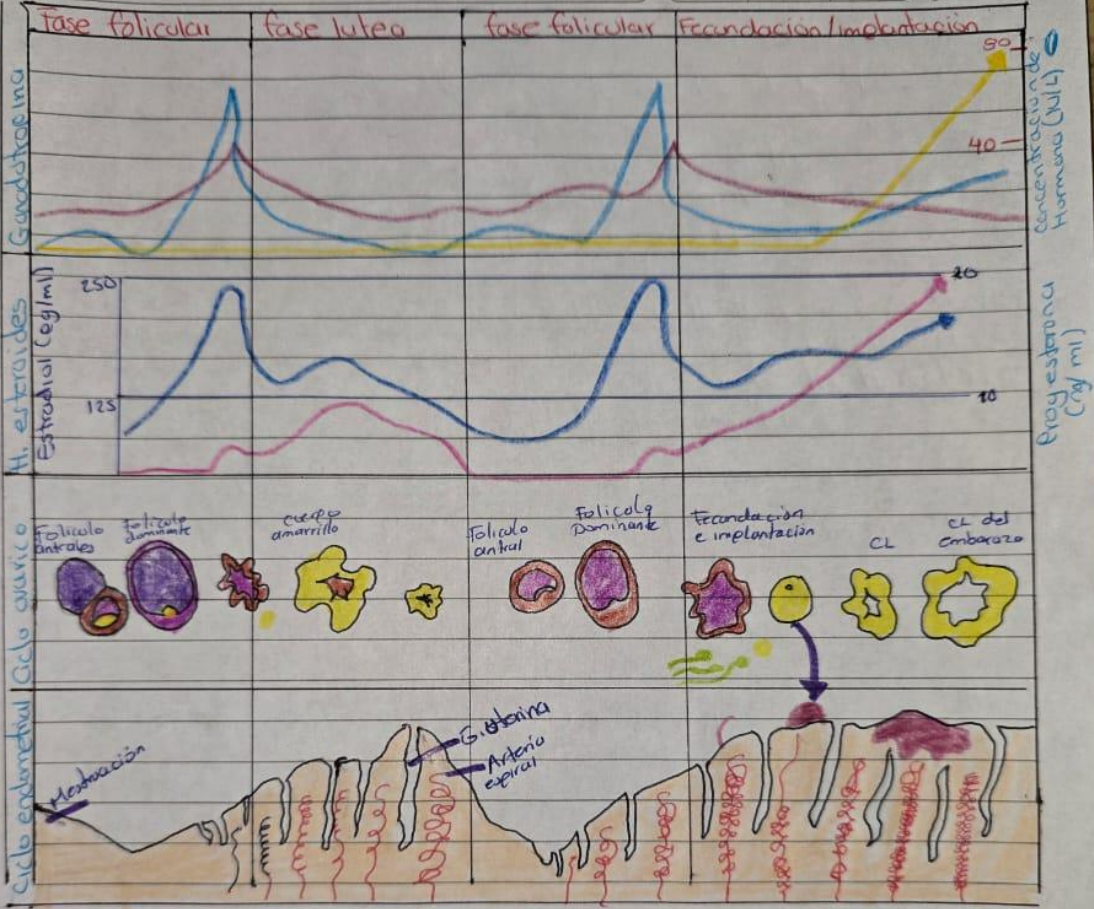 Fase folicular
fase lutea
fase folicular
Fecundación/implantación
Gonadotropina
80
40
Concentración de
Hormona (IU/L)
H. esteroides
Estradiol (og/ml)
250
125
20
10
Progesterona
(ng/ml)
Ciclo ovarico
Foliculo
antrales
Foliculo
dominante
cuerpo
amarrillo
Foliculo
antral
Foliculo
Dominante
Fecundacion
e implantación
CL
CL del
embarazo
Ciclo endometrial
Mestruación
G. uterina
Arteria
espiral